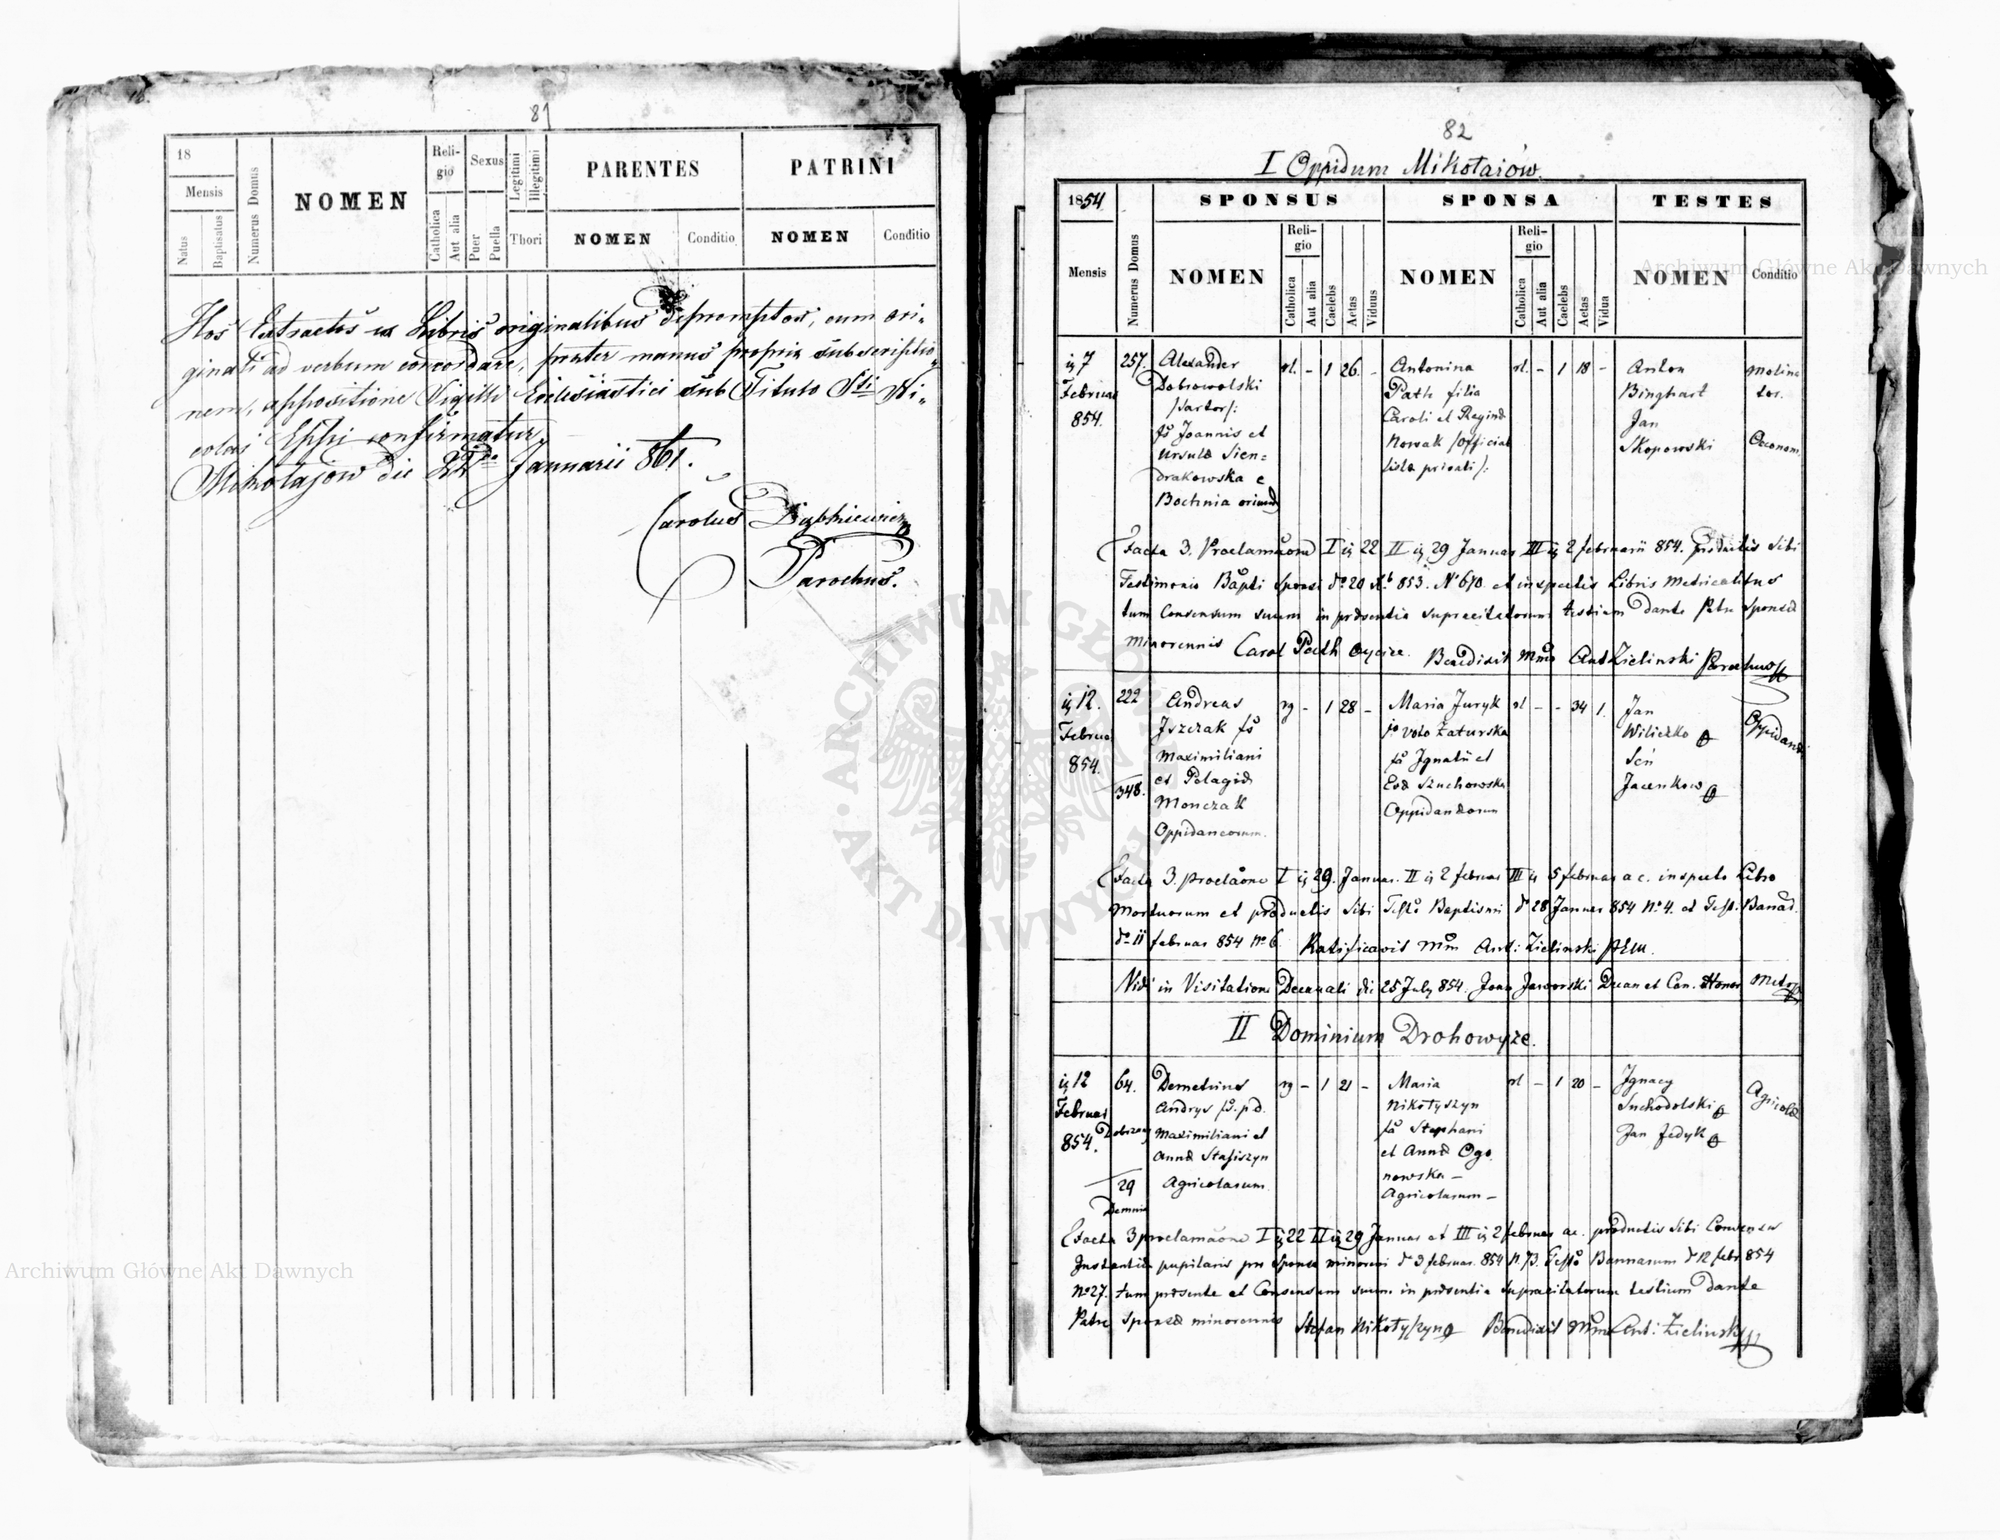 81
18
Mensis
Natus
Baptisatus
Numerus Domus
NOMEN
Reli-
gio
Catholica
Aut alia
Sexus
Puer
Puella
Legitimi
Illegitimi
Thori
PARENTES
NOMEN
Conditio
PATRINI
NOMEN
Conditio
Hos Extractos ex Libris originalibus depromptos, cum ori-
ginali ad verbum concordare, praeter manus propriae subscriptio-
nem, appositione Sigilli Ecclesiastici sub Titulo Sti Ni-
colai Eppi confirmatur.
Mikołajow die Januarii 861.
Carolus
Parochus.
82
I Oppidum Mikołaiów.
1854
Mensis
Numerus Domus
SPONSUS
NOMEN
Reli-
gio
Catholica
Aut alia
Caelebs
Aetas
Viduus
SPONSA
NOMEN
Reli-
gio
Catholica
Aut alia
Caelebs
Aetas
Vidua
TESTES
NOMEN
Conditio
7
Februar
854.
257.
Alexander
Dobrowolski
/Sartor/:
fs Joannis et
Ursulæ Sien=
drakowska e
Bochnia oriund
rl. – 1 26. –
Antonina
Path filia
Caroli et Reginæ
Nowak /Official
listæ privati/:
rl. – 1 18 –
Anton
Binghart
Jan
Skopowski
Molina
tor.
Oeconom
Facta 3. Proclamaone I 22 II 29 Januar III 2 februarii 854. productis sibi
Testimonio Bapti Sponsi 20 853. N 610. et inspectis Libris Metricalibus
tum Consensum suum in præsentia supracitatorum testium dante Patre Sponsæ
minorennis Carol Path oyciec. Benedixit Mm Ant Zielinski Parochus
12.
Februa
854.
222
348.
Andreas
Jszczak fs
Maximiliani
et Pelagiæ
Monczak
Oppidaneorum.
rg – 1 28 –
Maria Juryk
voto Zaturska
fa Jgnatii et
Evæ Szuchowska
Oppidanæorum
rl – – 34 1.
Jan
Wiliczko
Sen
Jacenkow
Oppidani
Facta 3. proclaone I 29. Januar. II 2 februar III 5 februar a c. inspecto Libro
Mortuorum et productis sibi Testo Baptismi 28 Januar 854 No 4. et Test. Banar.
11 februar 854 No 6. Ratificavit Mm Ant: Zielinski
Vidi in Visitatione Decanali die 25 July 854. Joan Jaworski Decan et Can. Honor Metrop
II Dominium Drohowyże.
12
Februar
854.
64.
29
Demnia
Demetrius
Andrys fs. p.d.
Maximiliani et
Annæ Stasiszyn
Agricolarum.
rg – 1 21 –
Maria
Nikołyszyn
fa Stephani
et Annæ Ogo
nowska –
Agricolarum –
rl – 1 20 –
Jgnacy
Suchodolski
Jan Fedyk
Agricolæ
Facta 3 proclamaone I 22 II 29 Januar et III 2 februar ac. productis sibi Consensu
Instantiæ pupilaris pro Sponso minorenni 3 februar. 854 N. 73. Testo Bannarum 12 febr 854
No 27. tum præsente et Consensum suum in præsentia supracitatorum testium dante
Patre Sponsæ minorennis Stefan Nikołyszyn Benedixit Mm Ant: Zielinski
Archiwum Główne Akt Dawnych
Archiwum Główne Akt Dawnych
ARCHIWUM GŁÓWNE
AKT DAWNYCH